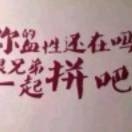 你的血性还在吗
跟兄弟一起拼吧